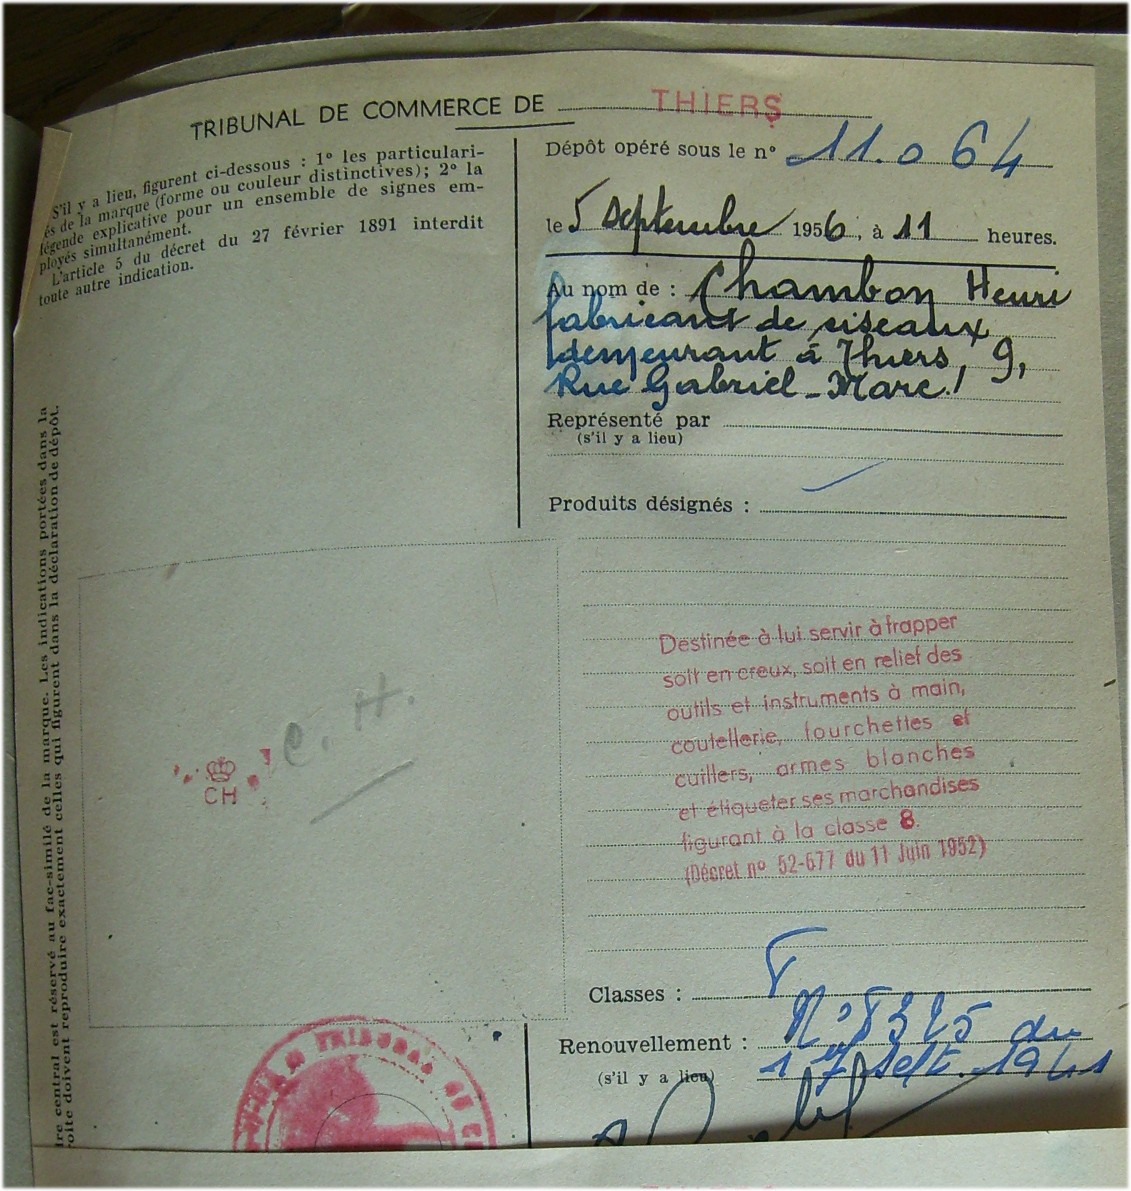 TRIBUNAL DE COMMERCE DE THIERS
S'il y a lieu, figurent ci-dessous : 1º les particulari-
és de la marque (forme ou couleur distinctives); 2º la
légende explicative pour un ensemble de signes em-
ployés simultanément.
L'article 5 du décret du 27 février 1891 interdit
toute autre indication.
Dépôt opéré sous le nº 11.064
le 5 Septembre 1956, à 11 heures.
Au nom de : Chambon Henri
fabricant de ciseaux
demeurant à Thiers, 9,
Rue Gabriel-Marc.
Représenté par
(s'il y a lieu)
Produits désignés :
Destinée à lui servir à frapper
soit en creux, soit en relief des
outils et instruments à main,
coutellerie, fourchettes et
cuillers, armes blanches
et étiqueter ses marchandises
figurant à la classe 8.
(Décret nº 52-677 du 11 Juin 1952)
C. H.
CH
Classes : 8
Renouvellement : Nº 8325 du
(s'il y a lieu) 17 Sept. 1941
TRIBUNAL
re central est réservé au fac-similé de la marque. Les indications portées dans la
oite doivent reproduire exactement celles qui figurent dans la déclaration de dépôt.